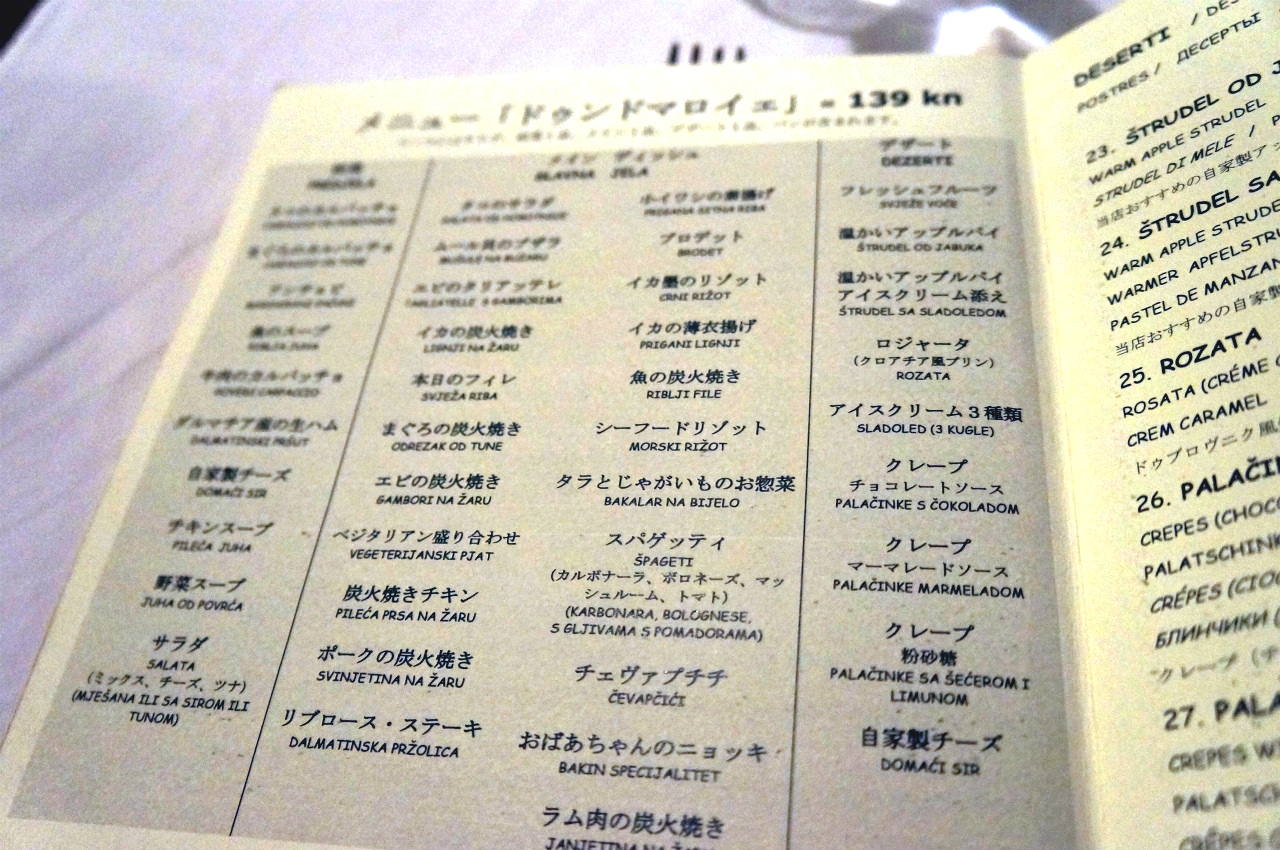 メニュー「ドゥンドマロイエ」 = 139 kn
前菜
PREDJELA
たこのカルパッチョ
まぐろのカルパッチョ
アンチョビ
魚のスープ
RIBLJA JUHA
牛肉のカルパッチョ
GOVEĐI CARPACCIO
ダルマチア産の生ハム
DALMATINSKI PRŠUT
自家製チーズ
DOMAĆI SIR
チキンスープ
PILEĆA JUHA
野菜スープ
JUHA OD POVRĆA
サラダ
SALATA
(ミックス、チーズ、ツナ)
(MJEŠANA ILI SA SIROM ILI
TUNOM)
メイン ディッシュ
GLAVNA JELA
タコのサラダ
SALATA OD HOBOTNICE
ムール貝のブザラ
MUŠULE NA BUZARU
エビのタリアッテレ
TAGLIATELLE S GAMBORIMA
イカの炭火焼き
LIGNJI NA ŽARU
本日のフィレ
SVJEŽA RIBA
まぐろの炭火焼き
ODREZAK OD TUNE
エビの炭火焼き
GAMBORI NA ŽARU
ベジタリアン盛り合わせ
VEGETERIJANSKI PJAT
炭火焼きチキン
PILEĆA PRSA NA ŽARU
ポークの炭火焼き
SVINJETINA NA ŽARU
リブロース・ステーキ
DALMATINSKA PRŽOLICA
小イワシの素揚げ
PRIGANA SITNA RIBA
ブロデット
BRODET
イカ墨のリゾット
CRNI RIŽOT
イカの薄衣揚げ
PRIGANI LIGNJI
魚の炭火焼き
RIBLJI FILE
シーフードリゾット
MORSKI RIŽOT
タラとじゃがいものお惣菜
BAKALAR NA BIJELO
スパゲッティ
ŠPAGETI
(カルボナーラ、ボロネーズ、マッ
シュルーム、トマト)
(KARBONARA, BOLOGNESE,
S GLJIVAMA S POMADORAMA)
チェヴァプチチ
ČEVAPČIĆI
おばあちゃんのニョッキ
BAKIN SPECIJALITET
ラム肉の炭火焼き
JANJETINA NA ŽARU
デザート
DEZERTI
フレッシュフルーツ
SVJEŽE VOĆE
温かいアップルパイ
ŠTRUDEL OD JABUKA
温かいアップルパイ
アイスクリーム添え
ŠTRUDEL SA SLADOLEDOM
ロジャータ
(クロアチア風プリン)
ROZATA
アイスクリーム3種類
SLADOLED (3 KUGLE)
クレープ
チョコレートソース
PALAČINKE S ČOKOLADOM
クレープ
マーマレードソース
PALAČINKE MARMELADOM
クレープ
粉砂糖
PALAČINKE SA ŠEĆEROM I
LIMUNOM
自家製チーズ
DOMAĆI SIR
DESERTI / DES
POSTRES / ДЕСЕРТЫ
23. ŠTRUDEL OD J
WARM APPLE STRUDEL
STRUDEL DI MELE /
当店おすすめの自家製アッ
24. ŠTRUDEL SA
WARM APPLE STRUDE
WARMER APFELSTRU
PASTEL DE MANZAN
当店おすすめの自家製
25. ROZATA
ROSATA (CRÉME
CREM CARAMEL
ドゥブロヴニク風
26. PALAČIN
CREPES (CHOCO
PALATSCHINK
CRÉPES (CIO
БЛИНЧИКИ (
クレープ (チ
27. PALA
CREPES W
PALATSC
CRÉPES